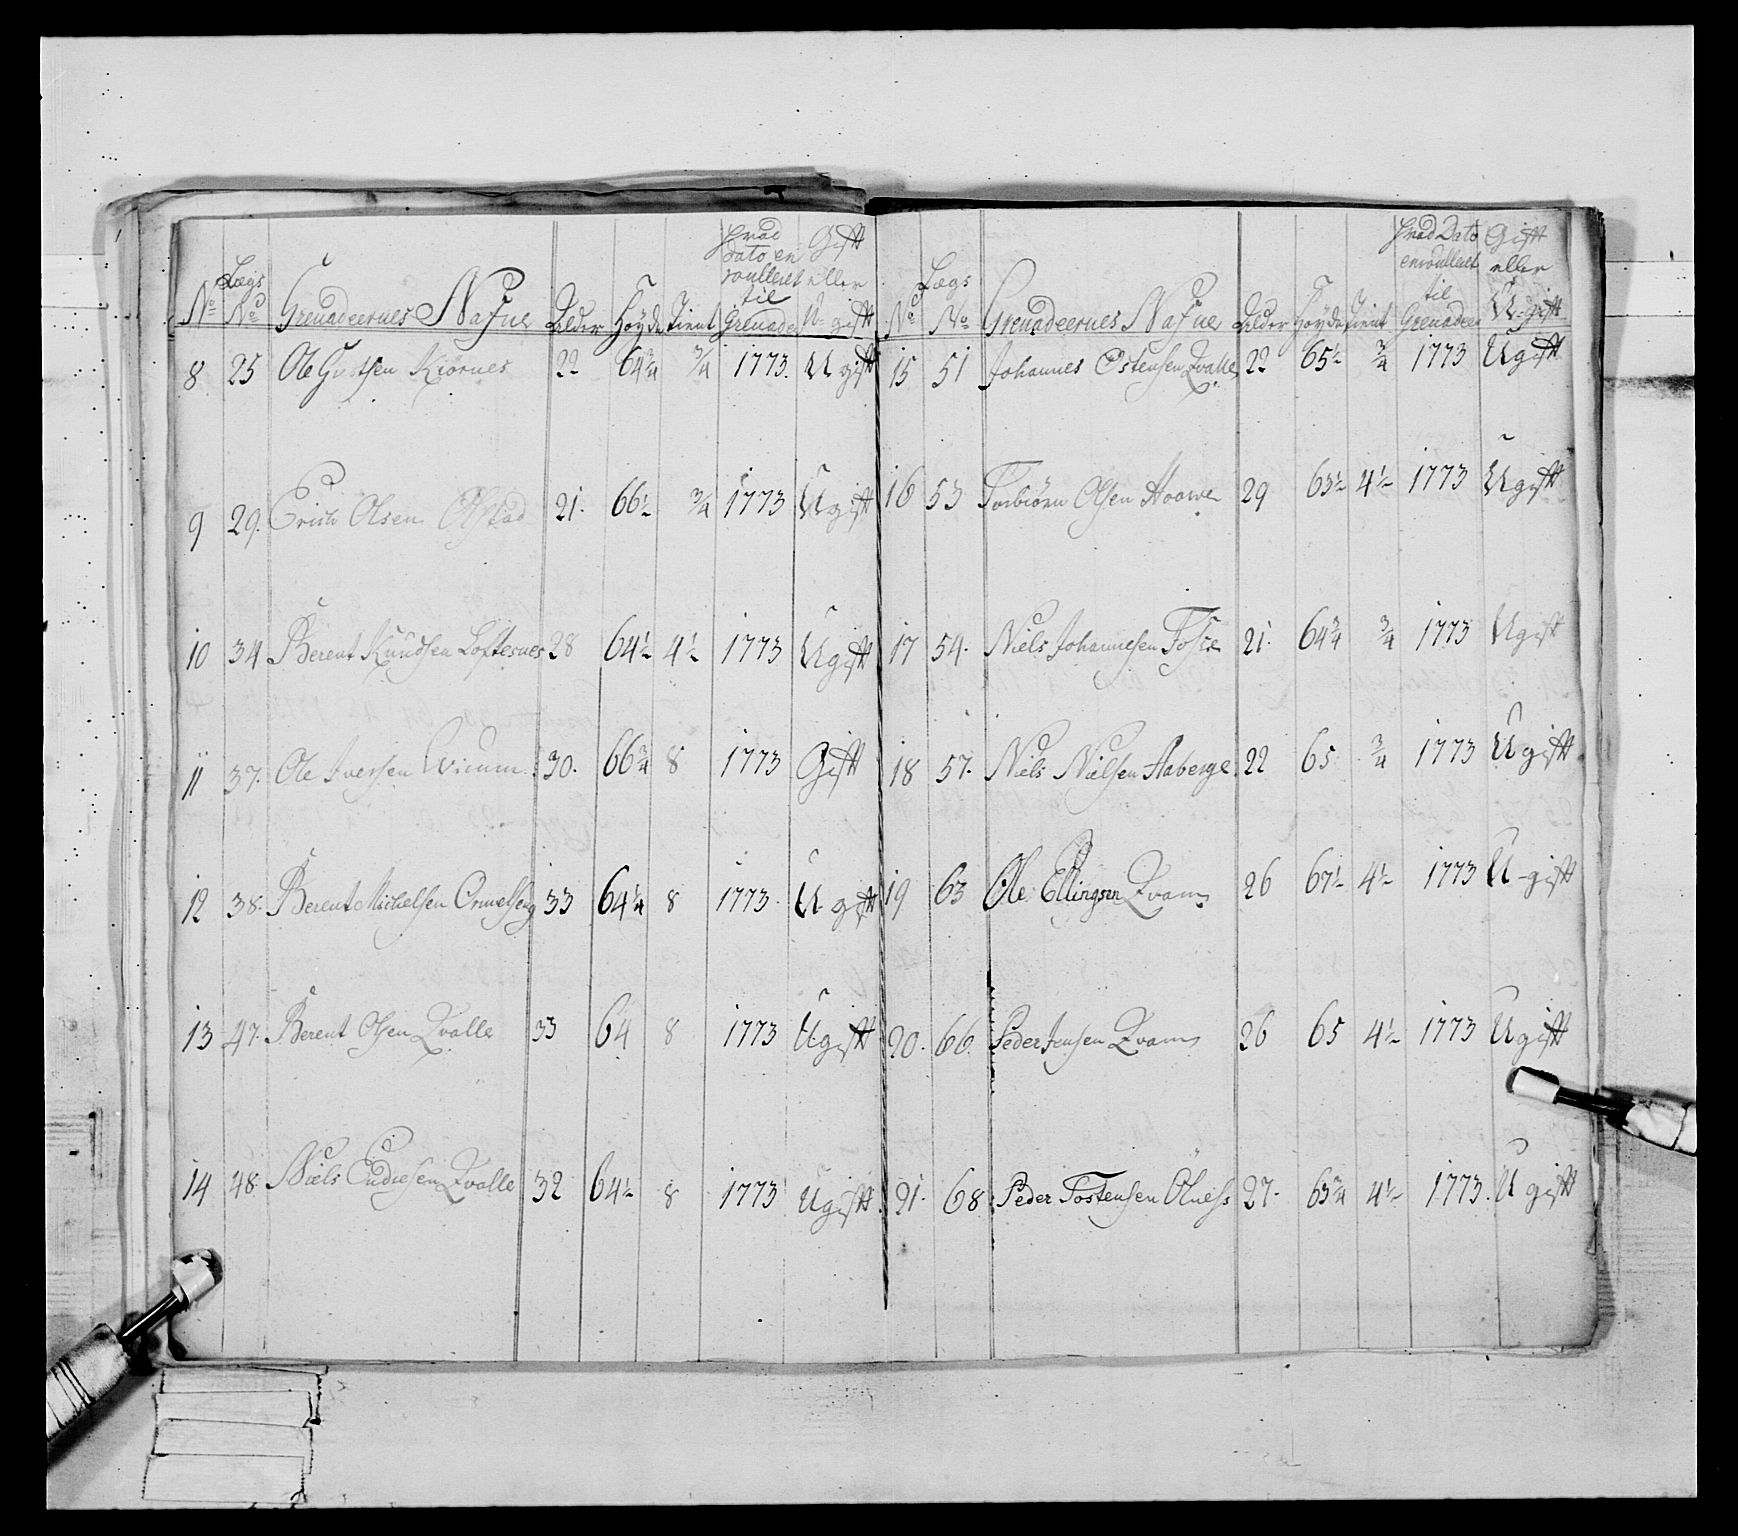 No Lægs No Grenadeernes Nafne Alder Høyde Tient Hvad dato enroulleret til Grenadeer Gift eller U-gift
8 25 Ole Giertsen Kiørnes 22 64¾ ¾ 1773. Ugift
9 29. Erich Olsen Ølstad 21. 66½ ¾ 1773 Ugift
10 34 Berent Knudsen Loftesnes 28 64½ 4½ 1773 Ugift
11 37. Ole Iversen Wicum 30. 66¾ 8 1773 Gift
12 38. Berent Michelsen Ormelseng 33 64¼ 8 1773. Ugift
13 47. Berent Olsen Qvalle 33 64 8 1773 Ugift
14 48. Niels Endresen Qvalle 32 64½ 8 1773 Ugift.
No Lægs No Grenadeernes Nafne Alder Høyde Tient Hvad Dato enroulleret til Grenadeer Gift eller U-gift
15 51 Johannes Ostensen Qvalle 22 65½ ¾ 1773 Ugift
16 53 Torbiørn Olsen Hoawe 29 63½ 4½ 1773 Ugift
17 54. Niels Johannesen Fosse 21. 64¾ ¾ 1773 Ugift
18 57. Niels Nielsen Aaberge 22 65 ¾ 1773 Ugift
19 63 Ole Ellingsen Qvam 26 67½ 4½ 1773 U-gift
20. 66 Peder Jensen Qvam 26 65 4½ 1773 Ugift
21. 68 Peder Tostensen Ølness 27. 63¾ 4½ 1773. Ugift